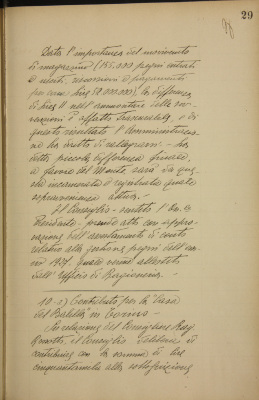 29
Data l'importanza del movimento
di magazzino (155.000 pegni entrati
e usciti, riscossioni e pagamenti
per circa Lire 58.000.000), la differenza
di Lire 11 nell'ammontare delle
è affatto trascurabile, e di
questo risultato l'Amministrazione
ha diritto di rallegrarsi. La
detta piccola differenza
a favore del Monte, sarà da questo
incamerata e registrata quale
sopravvenienza attiva.
Il Consiglio - sentito l'On. le
Presidente - prende atto con approvazione
dell'accertamento di conto
relativo alla gestione pegni dell'anno
1927 quale venne allestito
dall'Ufficio di Ragioneria.
10-0) Contributo per la "Casa
del Balilla" in Torino -
Su relazione del Consigliere Rag.
il Consiglio delibera di
contribuire con la somma di Lire
cinquantamila alla sottoscrizione